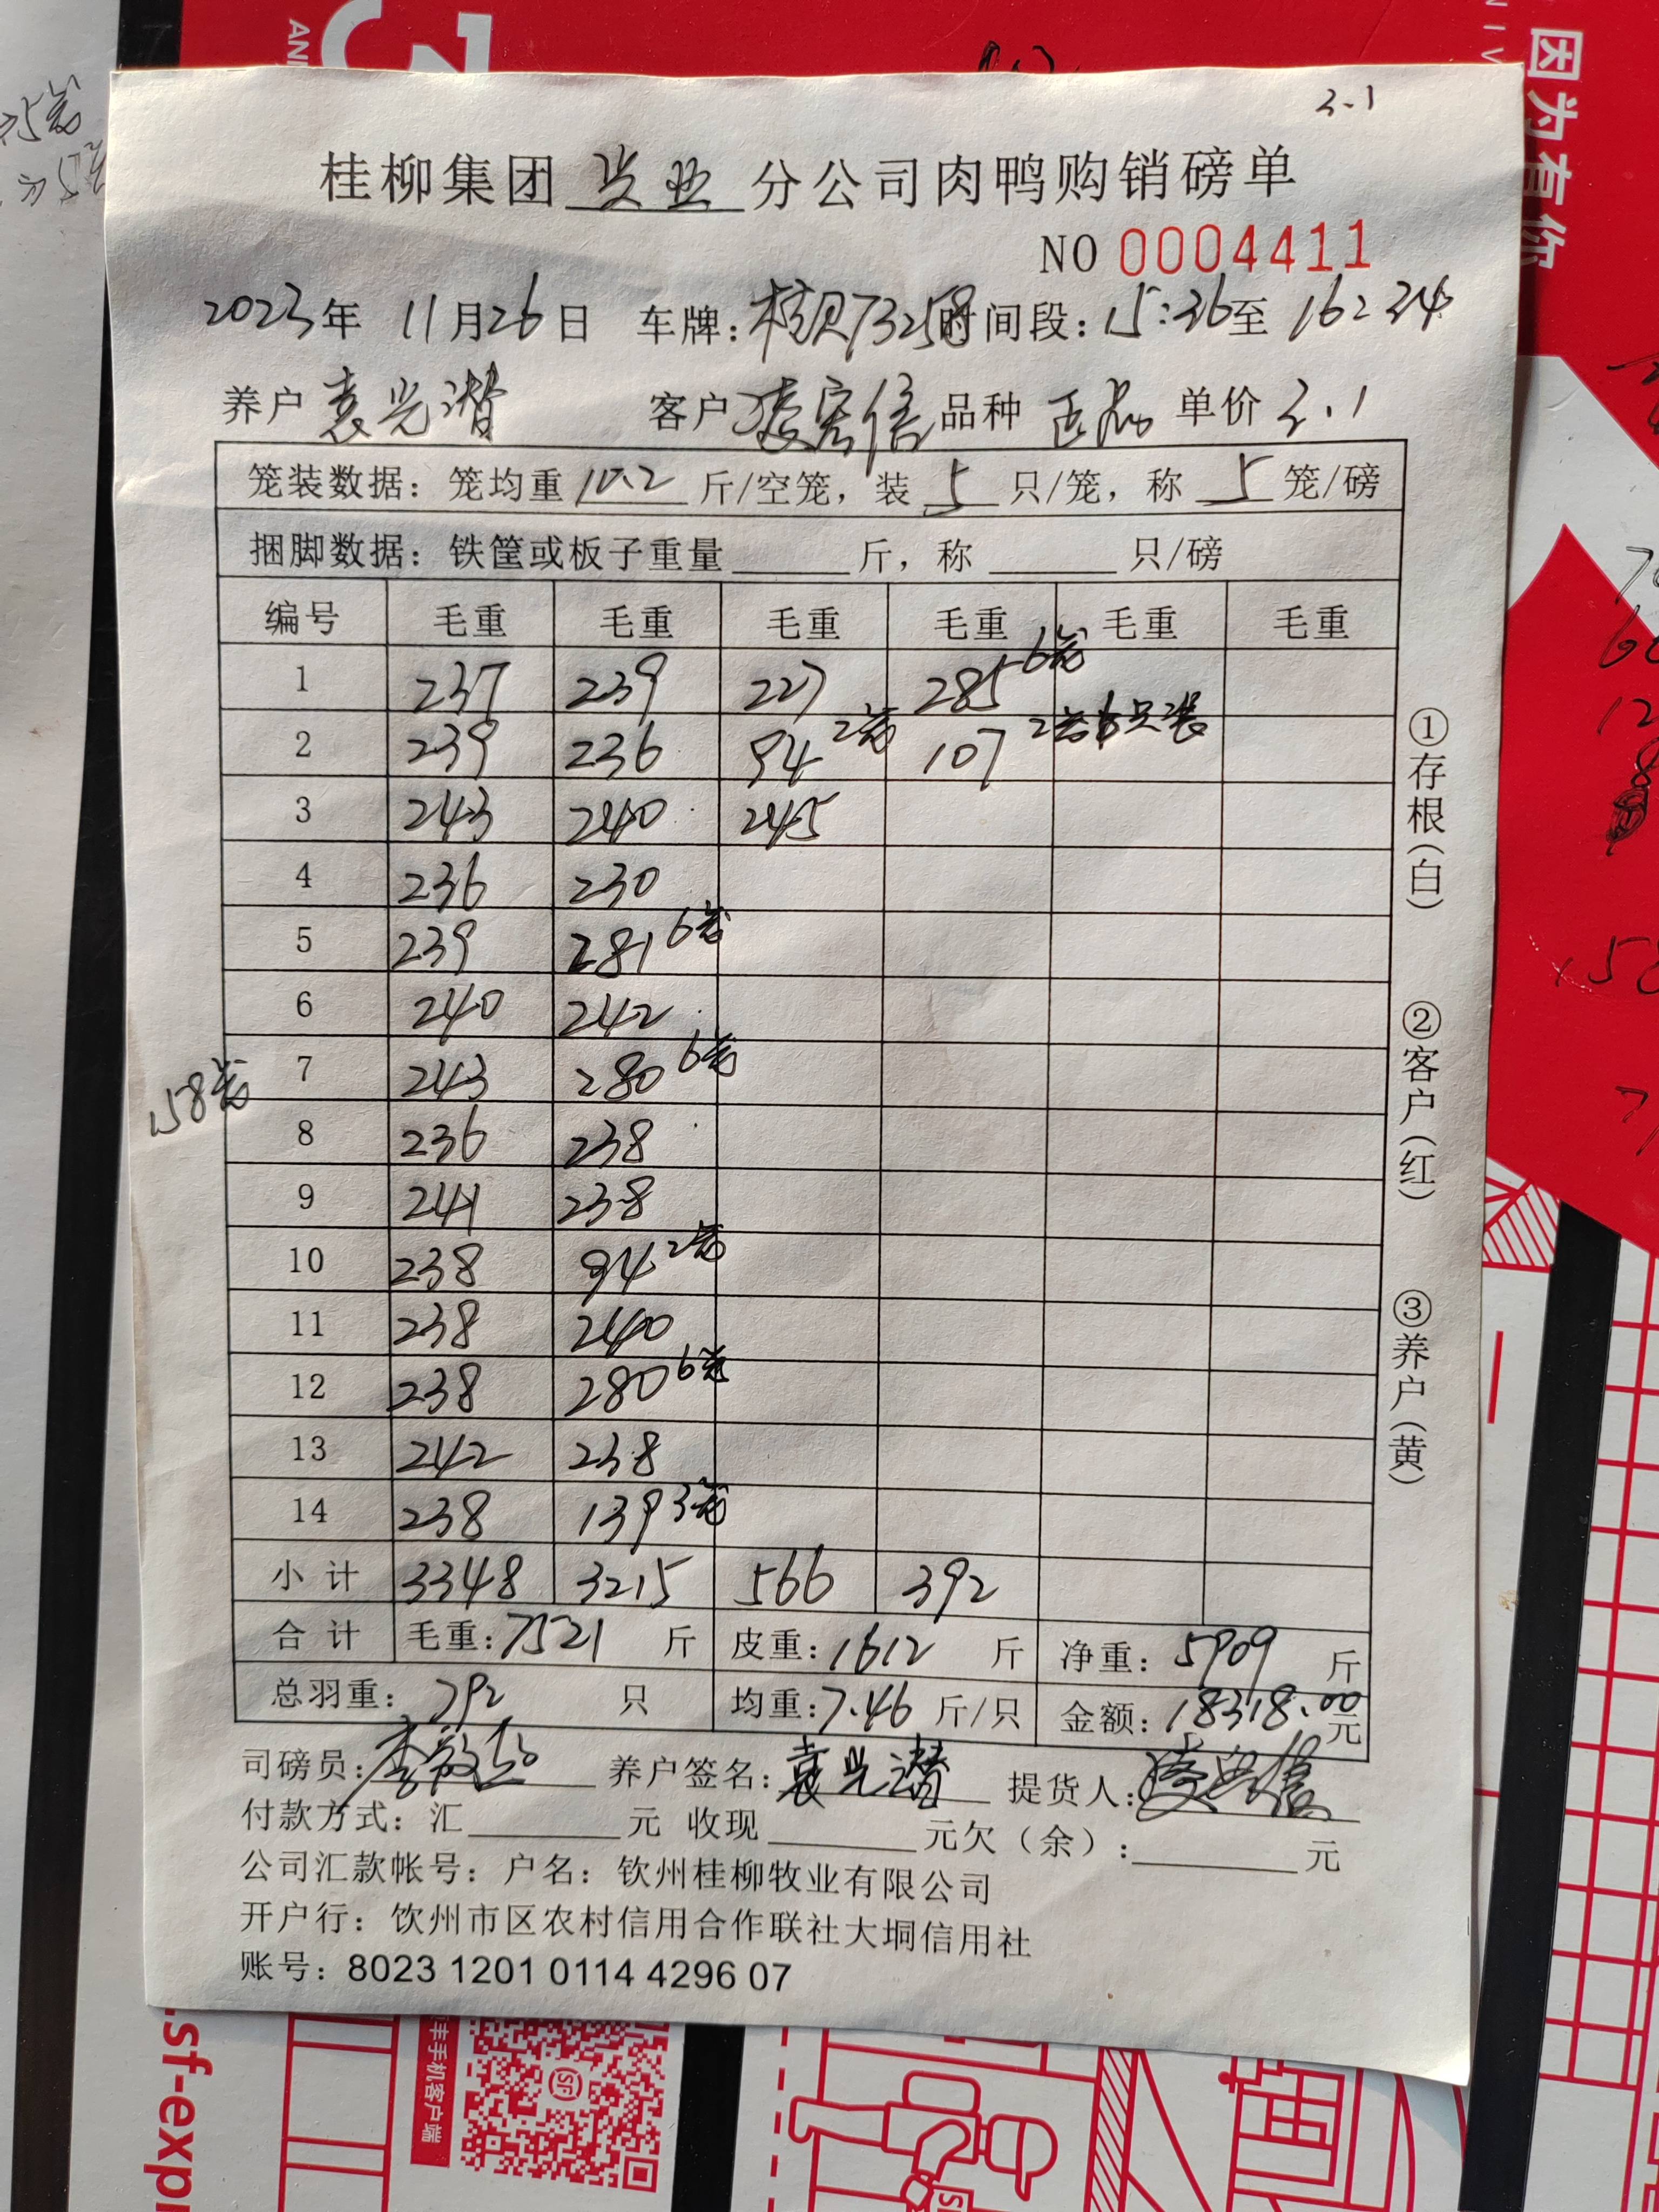 3.1
桂柳集团 兴业 分公司肉鸭购销磅单
NO 0004411
2023年 11月26日 车牌:桂贝73258 时间段:15:36至 16:34
养户 袁光潜 客户 凌宏信 品种 正品 单价 3.1
笼装数据: 笼均重 10.2 斤/空笼, 装 5 只/笼, 称 5 笼/磅
捆脚数据: 铁筐或板子重量 斤, 称 只/磅
编号 毛重 毛重 毛重 毛重 毛重 毛重
1 237 239 227 285 6笼
2 239 236 94 2笼 107 2笼6只装
3 243 240 245
4 236 230
5 239 281 6笼
6 240 242
7 243 280 6笼
158笼
8 236 238
9 241 238
10 238 94 2笼
11 238 240
12 238 280 6笼
13 242 238
14 238 139 3笼
小 计 3348 3215 566 392
合 计 毛重: 7521 斤 皮重: 1612 斤 净重: 5909 斤
总羽重: 792 只 均重: 7.46 斤/只 金额: 18318.00 元
司磅员: 养户签名: 袁光潜 提货人:
付款方式: 汇 元 收现 元欠(余): 元
公司汇款帐号: 户名: 钦州桂柳牧业有限公司
开户行: 钦州市区农村信用合作联社大垌信用社
账号: 8023 1201 0114 4296 07
①存根(白)
②客户(红)
③养户(黄)
因为有你
丰手机客户端
.sf-expr